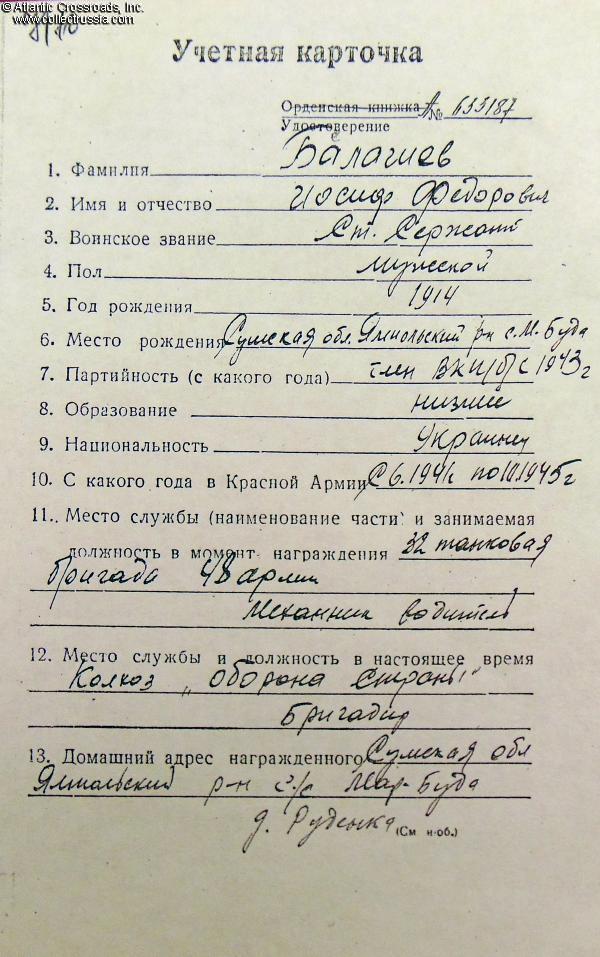 © Atlantic Crossroads, Inc.
www.collectrussia.com
Учетная карточка
Орденская книжка А № 655187
Удостоверение
1. Фамилия Балагиев
2. Имя и отчество Иосиф Федорович
3. Воинское звание Ст. Сержант
4. Пол мужской
5. Год рождения 1914
6. Место рождения Сумская обл. Ямпольский р-н с. М. Буда
7. Партийность (с какого года) член ВКП/б/ с 1943 г
8. Образование низшее
9. Национальность Украинец
10. С какого года в Красной Армии С 6. 1941 г по 10 1945 г
11. Место службы (наименование части и занимаемая
должность в момент награждения 32 танковая
бригада 48 армии
Механник водитель
12. Место службы и должность в настоящее время
Колхоз „Оборона Страны"
Бригадир
13. Домашний адрес награжденного Сумская обл
Ямпольский р-н с/с Мар-Буда
д. Руденка (См н-об.)